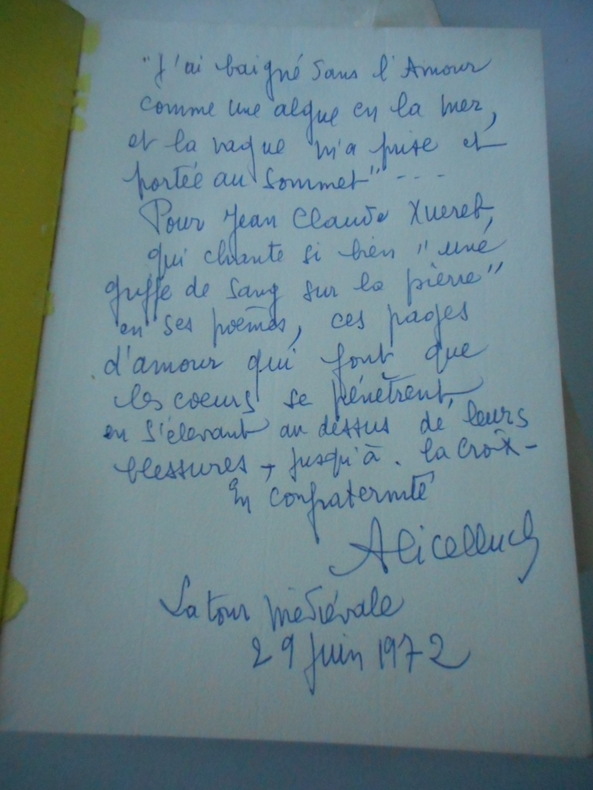 "J'ai baigné dans l'Amour
comme une algue en la mer,
et la vague m'a prise et
portée au sommet" - - -
Pour Jean Claude Xuereb,
qui chante si bien "une
griffe de sang sur la pierre"
en ses poèmes, ces pages
d'amour qui font que
les coeurs se pénètrent,
en s'élevant au dessus de leurs
blessures, jusqu'à la croix -
En confraternité
Alicelluch
La tour médiévale
29 Juin 1972